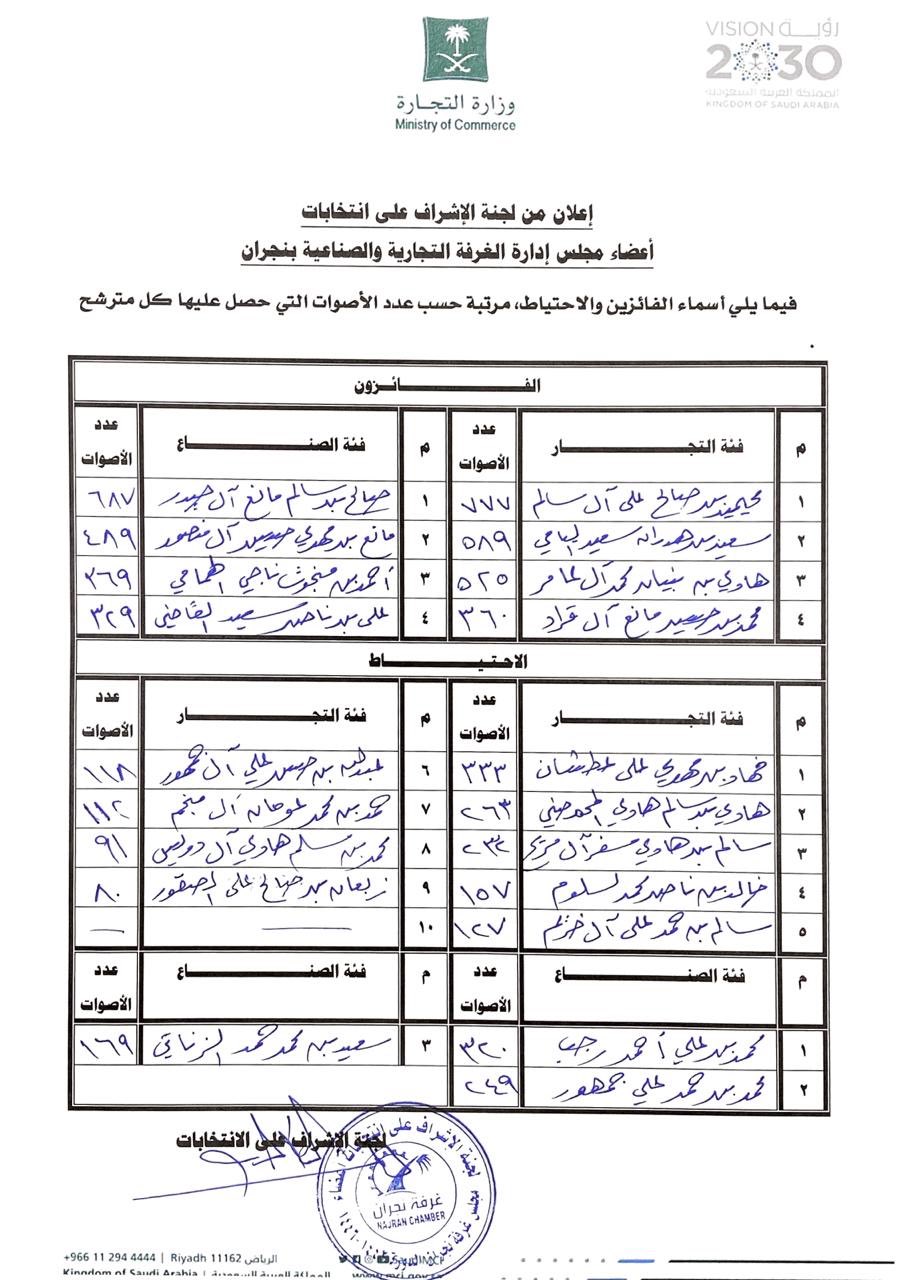 رؤيـة VISION
2030
المملكة العربية السعودية
KINGDOM OF SAUDI ARABIA
وزارة التجارة
Ministry of Commerce
إعلان من لجنة الإشراف على انتخابات
أعضاء مجلس إدارة الغرفة التجارية والصناعية بنجران
فيما يلي أسماء الفائزين والاحتياط، مرتبة حسب عدد الأصوات التي حصل عليها كل مترشح
الفـــــائـــزون
م فئة التجـــــــار عدد الأصوات م فئة الصنـــــــاع عدد الأصوات
١ بن صالح علي آل سالم ٧٧٧ ١ صالح بن سالم مانع آل حيدر ٦٨٧
٢ سعيد بن هدران سعيد اليامي ٥٨٩ ٢ مانع بن مهدي حسين آل منصور ٤٨٩
٣ هادي بن محمد آل عامر ٥٢٥ ٣ أحمد بن ناجي ٣٦٩
٤ محمد بن حسين مانع آل قراد ٣٦٠ ٤ علي بن ناصر سعيد القاضي ٣٢٩
الاحـتـيـــــــاط
م فئة التجـــــــار عدد الأصوات م فئة التجـــــــار عدد الأصوات
١ فهاد بن مهدي علي عطشان ٣٣٣ ٦ عبدالله بن حسن علي آل جمهور ١١٨
٢ هادي بن سالم هادي ٢٦٣ ٧ حمد بن محمد آل منجم ١١٢
٣ سالم بن هادي مسفر آل مريح ٢٣٢ ٨ محمد بن مسلم هادي آل دويس ٩١
٤ خالد بن ناصر محمد لسلوم ١٥٧ ٩ بن صالح علي ٨٠
٥ سالم بن حمد علي آل خزيم ١٢٧ ١٠ — —
م فئة الصنـــــــاع عدد الأصوات م فئة الصنـــــــاع عدد الأصوات
١ محمد بن علي أحمد رجب ٣٢٠ ٣ سعيد بن محمد حمد الزناتي ١٦٩
٢ محمد بن حمد علي جمهور ٢٤٩
لجنة الإشراف على الانتخابات
لجنة الإشراف على انتخابات أعضاء
مجلس غرفة نجران
غرفة نجران
NAJRAN CHAMBER
+966 11 294 4444 | Riyadh 11162 الرياض
SaudiMCI
Kingdom of Saudi Arabia | المملكة العربية السعودية
www.mci.gov.sa